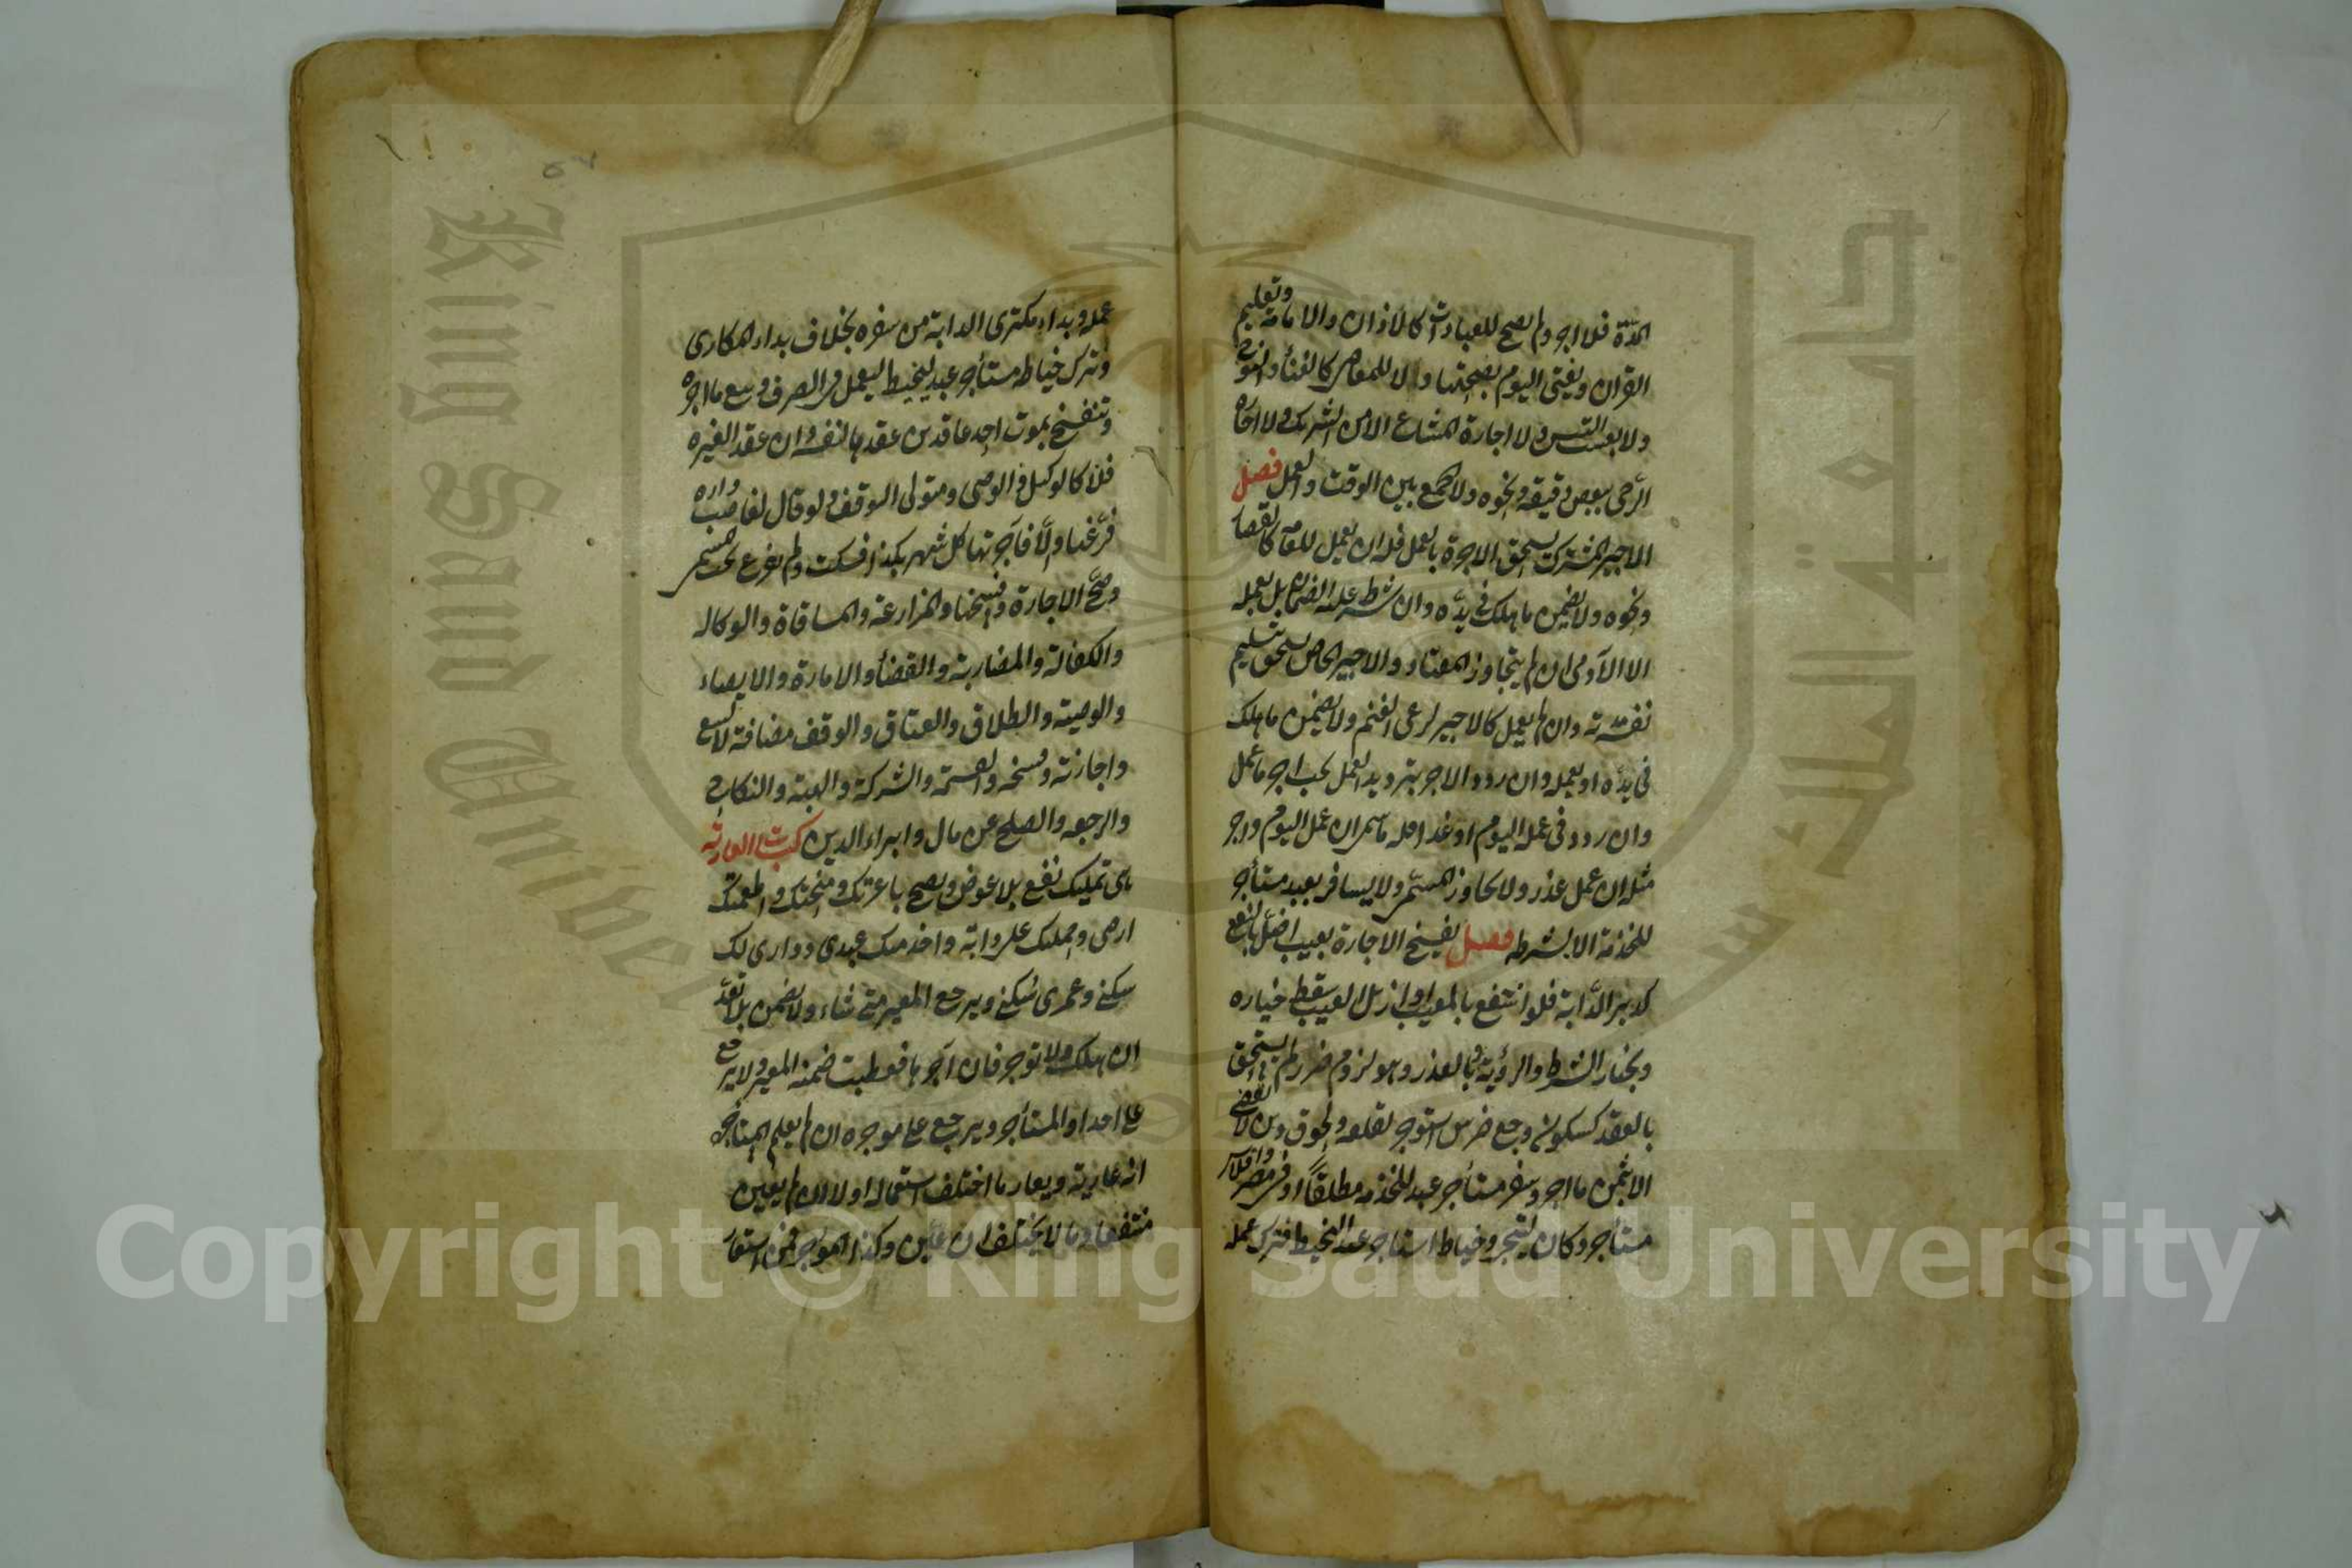 المدة فلا اجر ولم يصح للعبادات كالاذان والامامة وتعليم
القرآن ويفتى اليوم بصحتها ولا للمعاصى كالغناء والنوح
ولا لعسب التيس ولا اجارة المشاع الا من الشريك ولا اجارة
الرحى ببعض دقيقه ونحوه ولا الجمع بين الوقت والعمل فصل
الاجير المشترك يستحق الاجرة بالعمل فله ان يعمل للعامة كالقصار
ونحوه ولا يضمن ما هلك فى يده وان شرط عليه الضمان بل بعمله
الا الآدمى ان لم يتجاوز المعتاد والاجير الخاص يستحق بتسليم
نفسه مدته وان لم يعمل كالاجير لرعى الغنم ولا يضمن ما هلك
فى يده او بعمله وان ردد الاجر بترديد العمل يجب اجر ما عمل
وان ردد فى عمله اليوم او غدا فله ما سمى ان عمل اليوم واجر
مثله ان عمل غدا ولا يجاوز المسمى ولا يسافر بعبد مستأجر
للخدمة الا بشرطه فصل يفسخ الاجارة بعيب اخل بالنفع
كدبر الدابة فلو انتفع بالمعيب او ازيل العيب سقط خياره
وبخيار الشرط والرؤية وبالعذر وهو لزوم ضرر لم يستحق
بالعقد كسكون وجع ضرس استوجر لقلعه ولحوق دين لا يقضى
الا بثمن ما اجر وسفر مستأجر عبد للخدمة مطلقا او فى مصر وافلاس
مستأجر دكان ليتجر وخياط استأجر عبدا ليخيط فترك عمله
عمله وبداء مكترى الدابة من سفره بخلاف بداء المكارى
وترك خياطة مستأجر عبد ليخيط ليعمل فى الصرف وبيع ما اجره
وتنفسخ بموت احد عاقدين عقدها لنفسه وان عقد لغيره
فلا كالوكيل والوصى ومتولى الوقف ولو قال لغاصب داره
فرغها والا فآجرتها كل شهر بكذا فسكت ولم يفرغ يجب المسمى
وصح الاجارة وفسخها والمزارعة والمساقاة والوكالة
والكفالة والمضاربة والقضاء والامارة والايصاء
والوصية والطلاق والعتاق والوقف مضافة لا البيع
واجازته وفسخه والقسمة والشركة والهبة والنكاح
والرجعة والصلح عن مال وابراء الدين كتاب العارية
هى تمليك نفع بلا عوض ويصح باعرتك ومنحتك واطعمتك
ارضى وحملتك على دابة واخدمتك عبدى ودارى لك
سكنى وعمرى سكنى ويرجع المعير متى شاء ولا يضمن بلا تعد
ان هلك ولا توجر فان آجرها فعطبت ضمنه المعير ولا يرجع
على احد او المستأجر ويرجع على موجره ان لم يعلم المستأجر
انه عارية ويعار ما اختلف استعماله او لا ان لم يعين
منتفعا وما لا يختلف ان عين وكذا الموجر فمن استعار